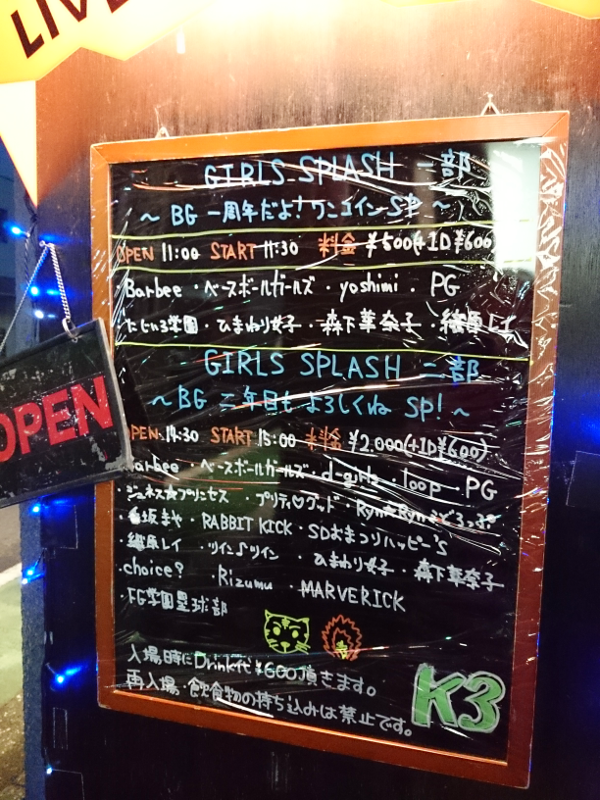 LIVE
GIRLS SPLASH 一部
～ BG 一周年だよ!ワンコインSP ～
OPEN 11:00 START 11:30 料金 ¥500(+1D¥600)
Barbee・ベースボールガールズ・yoshimi・PG
・たじいろ学園・ひまわり女子・森下華奈子・綾原レイ
GIRLS SPLASH 二部
～BG 二年目もよろしくね SP!～
OPEN 14:30 START 15:00 料金 ¥2.000(+1D¥600)
Barbee・ベースボールガールズ・d-girls・loop・PG
・ジュネス☆プリンセス ・プリティ♡グッド・Ryn☆Rynまどろっぷ
坂まや・RABBIT KICK・SDおまつりハッピー'S
・綾原レイ ・ツイン♪ツイン ・ひまわり女子・森下華奈子
・choice? ・Rizumu ・MARVERICK
・FG学園星球部
入場時にDrink代¥600頂きます。
再入場・飲食物の持ち込みは禁止です。
K3
OPEN